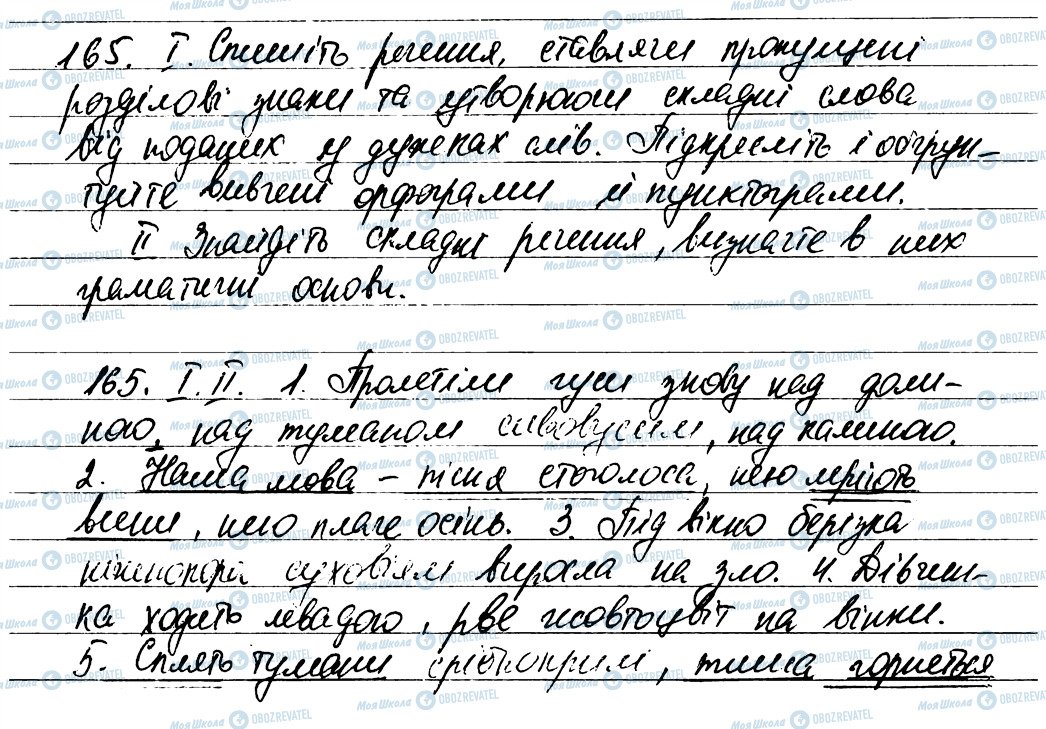 165. I. Спишіть речення, ставлячи пропущені
розділові знаки та утворюючи складні слова
від поданих у дужках слів. Підкресліть і обґрун-
туйте вивчені орфограми й пунктограми.
II Знайдіть складні речення, визначте в них
граматичні основи.
165. I. II. 1. Пролетіли гуси знову над доли-
ною, над туманом сивовусим, над калиною.
2. Наша мова – пісня стоголоса, нею мріють
весни, нею плаче осінь. 3. Під вікно берізка
ніжнопора суховіям виросла на зло. 4. Дівчин-
ка ходить левадою, рве жовтоцвіт на вінки.
5. Сплять тумани срібнокрилі, тиша горнеться